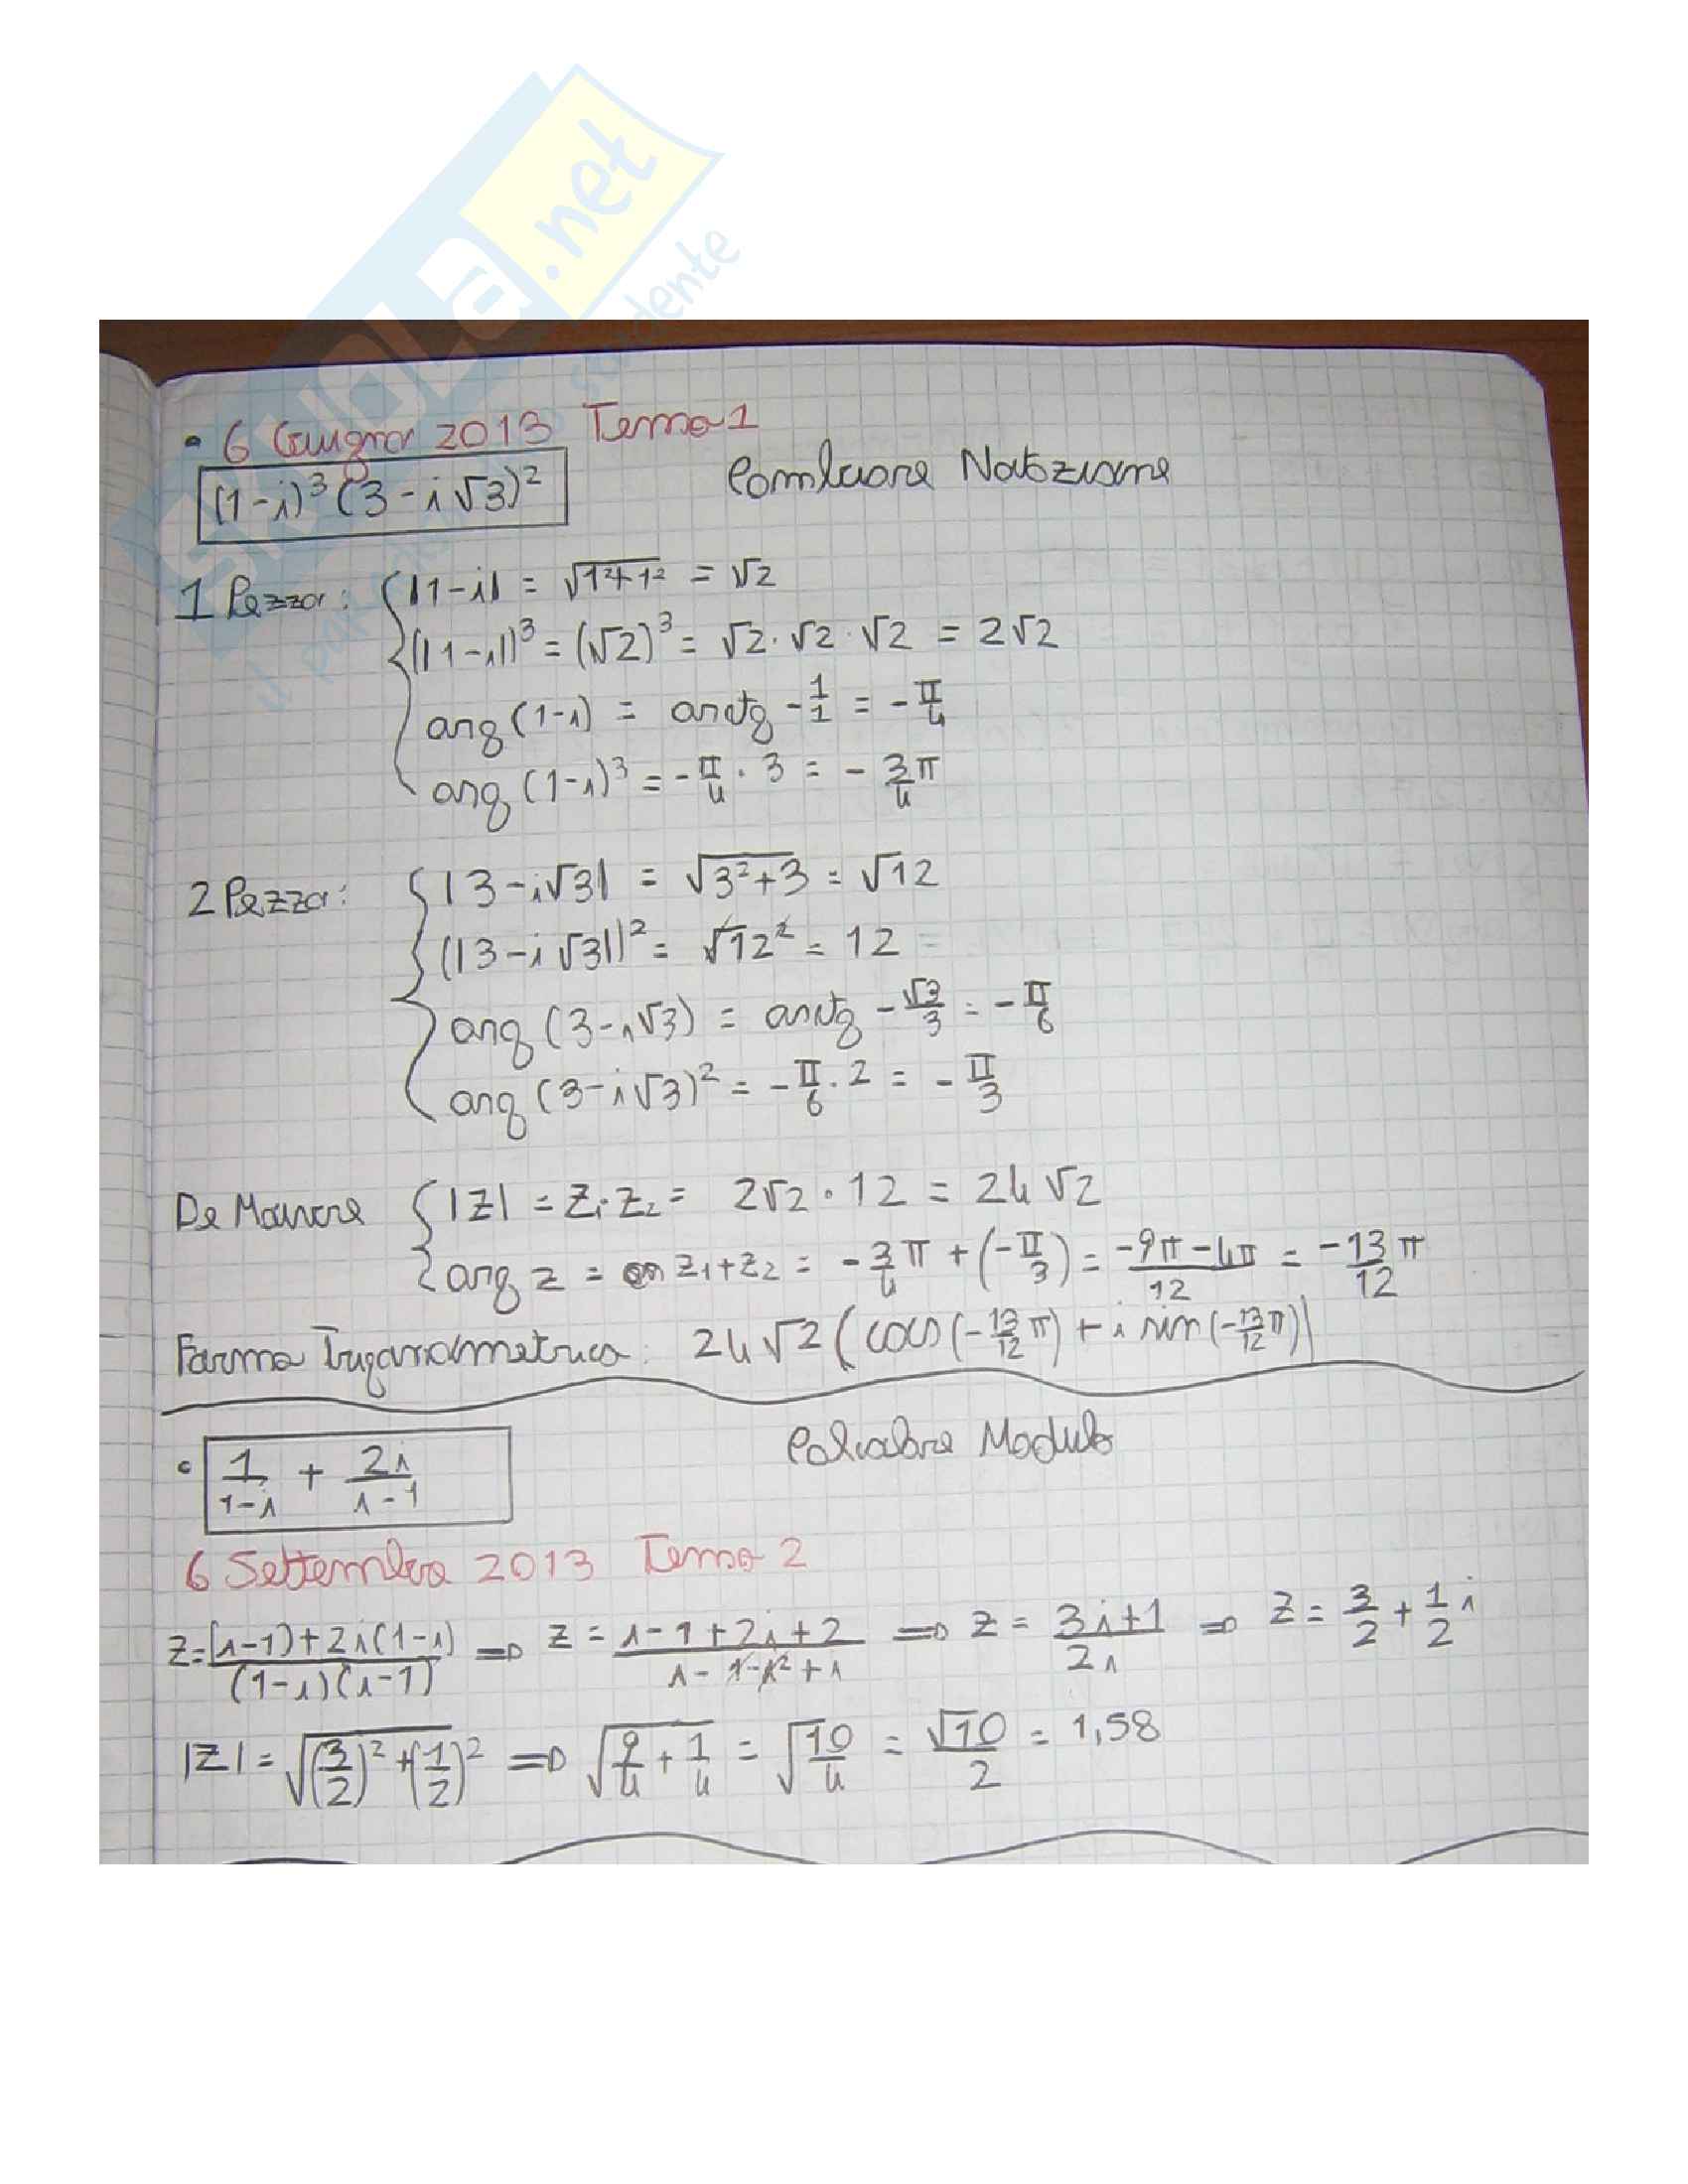 SKUOLA.net
il paradiso dello studente
• 6 Giugno 2013 Tema 1
(1-i)³(3-i√3)² Cambiare Notazione
1 Pezzo: |1-i| = √1²+1² = √2
(|1-i|)³ = (√2)³ = √2·√2·√2 = 2√2
arg(1-i) = arctg -1/1 = -π/4
arg(1-i)³ = -π/4 · 3 = -3/4 π
2 Pezzo: |3-i√3| = √3²+3 = √12
(|3-i√3|)² = √12² = 12
arg(3-i√3) = arctg -√3/3 = -π/6
arg(3-i√3)² = -π/6 · 2 = -π/3
De Moivre |z| = z₁·z₂ = 2√2 · 12 = 24√2
arg z = z₁+z₂ = -3/4 π + (-π/3) = (-9π-4π)/12 = -13/12 π
Forma Trigonometrica: 24√2 (cos(-13/12 π) + i sin(-13/12 π))
• 1/(1-i) + 2i/(i-1) Calcolare Modulo
6 Settembre 2013 Tema 2
z = [(i-1)+2i(1-i)]/[(1-i)(i-1)] ⇒ z = (i-1+2i+2)/(i-1-i²+i) ⇒ z = (3i+1)/2i ⇒ z = 3/2 + 1/2 i
|z| = √(3/2)²+(1/2)² ⇒ √9/4+1/4 = √10/4 = √10/2 = 1,58